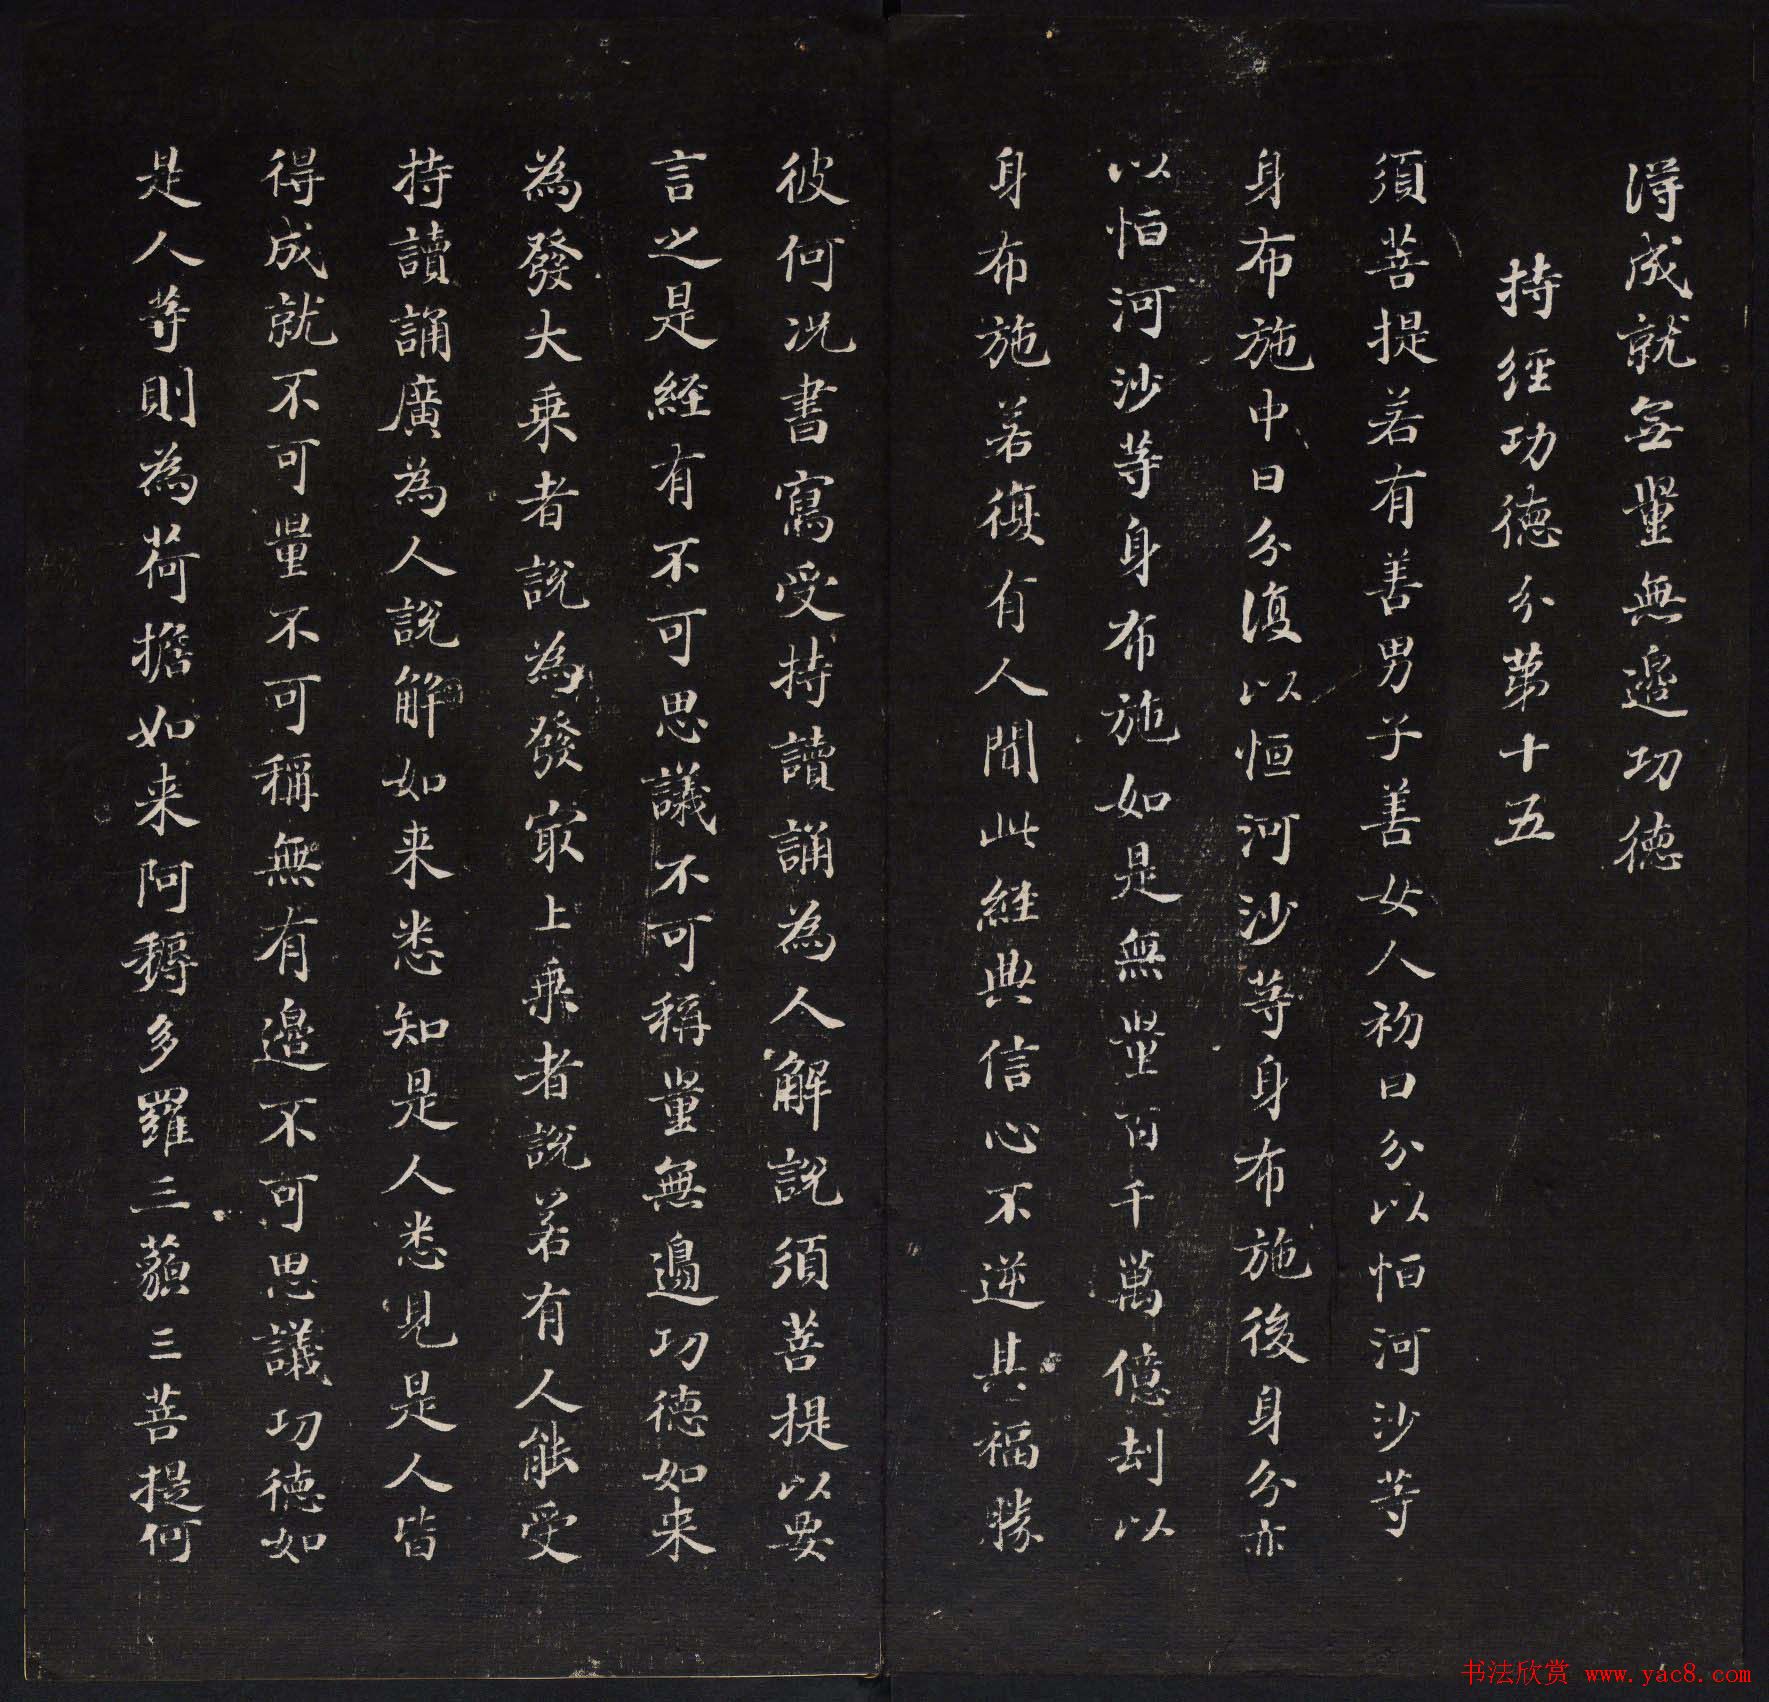 得成就無量無邊功德
持經功德分第十五
須菩提若有善男子善女人初日分以恒河沙等
身布施中日分復以恒河沙等身布施後身分亦
以恒河沙等身布施如是無量百千萬億劫以
身布施若復有人聞此經典信心不逆其福勝
彼何況書寫受持讀誦為人解說須菩提以要
言之是經有不可思議不可稱量無邊功德如来
為發大乘者說為發冣上乘者說若有人能受
持讀誦廣為人說解如来悉知是人悉見是人皆
得成就不可量不可稱無有邊不可思議功德如
是人等則為荷擔如来阿耨多羅三藐三菩提何
书法欣赏 www.yac8.com